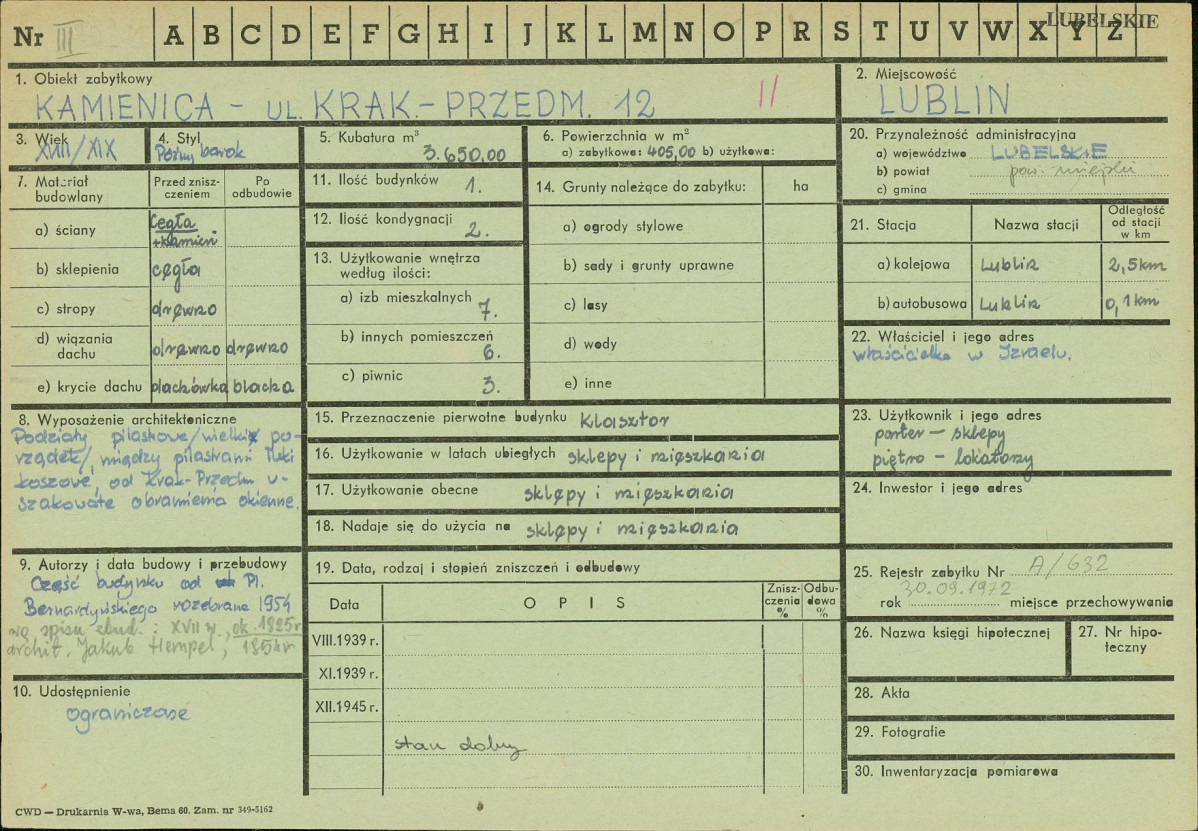 Nr III A B C D E F G H I J K L M N O P R S T U V W X Y Z LUBELSKIE
1. Obiekt zabytkowy
KAMIENICA - UL. KRAK-PRZEDM. 12 11
2. Miejscowość
LUBLIN
3. Wiek
XVII/XIX
4. Styl
Późny barok
5. Kubatura m³
3.650,00
6. Powierzchnia w m²
a) zabytkowa: 405,00 b) użytkowa:
7. Materiał budowlany
Przed zniszczeniem
Po odbudowie
a) ściany
cegła
+kamień
b) sklepienia cegła
c) stropy drewno
d) wiązania dachu drewno drewno
e) krycie dachu dachówka blacha
8. Wyposażenie architektoniczne
Podziały pilastrowe/wielki po-
rządek/, między pilastrami łuki
koszowe, od Krak-Przedm u-
szakowate obramienia okienne.
9. Autorzy i data budowy i przebudowy
Część budynku od Pl.
Bernardyńskiego rozebrana 1954
wg spisu zbud.: XVII w., ok. 1825r
archit. Jakub Hempel, 1854r
10. Udostępnienie
ograniczone
11. Ilość budynków 1.
12. Ilość kondygnacji 2.
13. Użytkowanie wnętrza
według ilości:
a) izb mieszkalnych 7.
b) innych pomieszczeń 6.
c) piwnic 3.
14. Grunty należące do zabytku: ha
a) ogrody stylowe
b) sady i grunty uprawne
c) lasy
d) wody
e) inne
15. Przeznaczenie pierwotne budynku klasztor
16. Użytkowanie w latach ubiegłych sklepy i mieszkania
17. Użytkowanie obecne sklepy i mieszkania
18. Nadaje się do użycia na sklepy i mieszkania
19. Data, rodzaj i stopień zniszczeń i odbudowy
Data OPIS Zniszczenia % Odbudowa %
VIII.1939 r.
XI.1939 r.
XII.1945 r.
stan dobry
20. Przynależność administracyjna
a) województwo LUBELSKIE
b) powiat pow. miejski
c) gmina
21. Stacja Nazwa stacji Odległość od stacji w km
a) kolejowa Lublin 2,5km
b) autobusowa Lublin 0,1km
22. Właściciel i jego adres
właścicielka w Izraelu.
23. Użytkownik i jego adres
parter - sklepy
piętro - lokatorzy
24. Inwestor i jego adres
25. Rejestr zabytku Nr A/632
30.09.1972
rok miejsce przechowywania
26. Nazwa księgi hipotecznej
27. Nr hipoteczny
28. Akta
29. Fotografie
30. Inwentaryzacja pomiarowa
CWD — Drukarnia W-wa, Bema 60. Zam. nr 349-5162